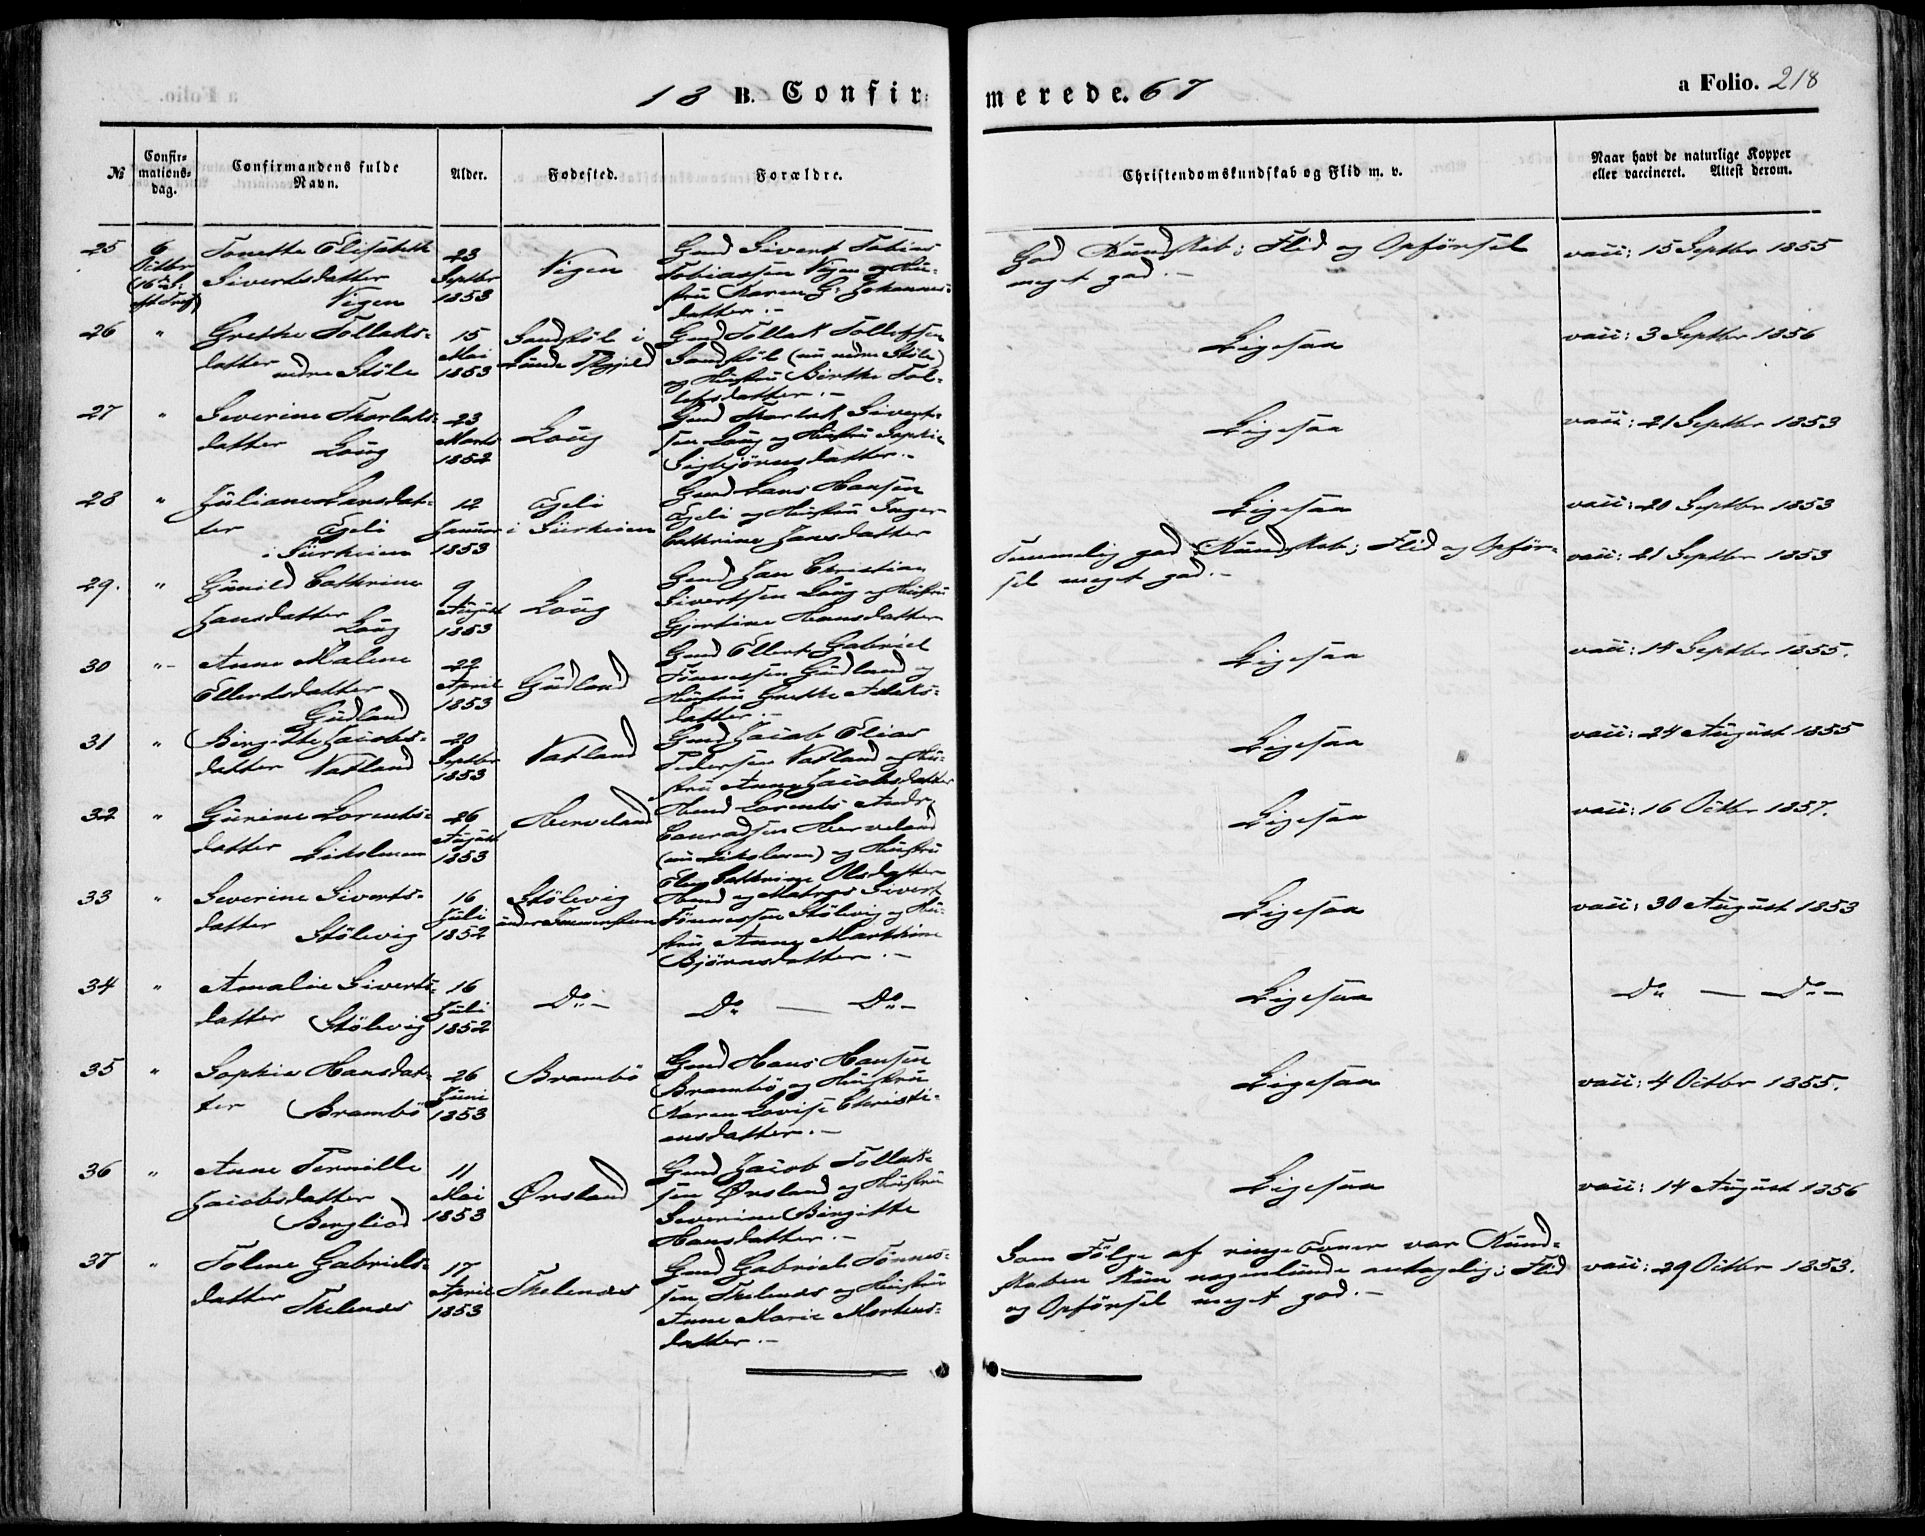 18 B. Confirmerede. 67
a Folio. 218
№
Confirmations-dag.
Confirmandens fulde Navn.
Alder.
Fødested.
Forældre.
Christendomskundskab og Flid m. v.
Naar havt de naturlige Kopper eller vaccineret. Attest derom.
25
6 Octbr
Tonette Elisabeth
Sivertsdatter
Vigen
23
Septbr
1853
Vigen
Gmd Sivert Tobias
Tobiassen Vigen og Hu-
stru Karen G: Johannes-
datter.-
God Kundskab; Flid og Opførsel
meget god.-
vacc: 15 Septbr 1855
26
"
Grethe Tollaks-
datter nedre Støle
15
Mai
1853
Sandstøl i
Lunde Psgjeld
Gmd Tollak Tollefsen
Sandstøl (nu nedre Støle)
og Hustru Birthe Tol-
lefsdatter.-
Ligesaa
vacc: 3 Septbr 1856
27
"
Severine Thorlaks-
datter Loug
23
Marts
1852
Loug
Gmd Thorlak Sivert-
sen Loug og Hustru Sophie
Sigbjørnsdatter.-
Ligesaa
vacc: 21 Septbr 1853
28
"
Juliane Larsdat-
ter Egeli
i Siirheiem
12
Januar
1853
Egeli
i Siirheiem
Gmd Lars Hansen
Egeli og Hustru Inger
Cathrine Jansdatter
Ligesaa
vacc: 20 Septbr 1853
29.
"
Gunild Cathrine
Jansdatter
Loug
9
August
1853
Loug
Gmd Jan Christian
Sivertsen Loug og Hustru
Gjertine Hansdatter
Temmelig god Kundskab; Flid og Opfør-
sel meget god.-
vacc: 21 Septbr 1853
30
"-
Anne Malene
Ellertsdatter
Gudland
22
April
1853
Gudland
Gmd Ellert Gabriel
Tønnessen Gudland og
Hustru Grethe Aslaks-
datter.-
Ligesaa
vacc: 14 Septbr 1855.
31
"
Birgitte Jacobs-
datter Vatland
20
Septbr
1853
Vatland
Gmd Jacob Elias
Pedersen Vatland og Hu-
stru Anne Jacobsdatter
Ligesaa
vacc: 24 August 1855
32
"
Gurine Lorents-
datter
26
August
1853
Herveland
Hmd Lorents Andr:
Conradsen Herveland
og Hustru
Elen Cathrine Olsdatter
Ligesaa
vacc: 16 Octbr 1857.
33
"
Severine Siverts-
datter
Stølevig
16
Juli
1852
Stølevig
Hmd og Matros Sivert
Tønnessen Stølevig og Hu-
stru Anne Marthine
Bjørnsdatter.-
Ligesaa
vacc: 30 August 1853
34
"
Amalie Siverts-
datter Stølevig
16
Juli
1852
Do-
Do — Do-
Ligesaa
Do — Do-
35
"
Sophie Hansdat-
ter Brambø
26
Juni
1853
Brambø
Gmd Hans Hansen
Brambø og Hustru
Karen Lovise Christi-
ansdatter.-
Ligesaa
vacc: 4 Octbr 1855.
36
"
Anne Pernille
Jacobsdatter
Bergliod
11
Mai
1853
Ørsland
Gmd Jacob Tollak-
sen Ørsland og Hustru
Severine Birgitte
Hansdatter.-
Ligesaa
vacc: 14 August 1856
37
"
Tolene Gabriels-
datter
Thelenæs
17
April
1853
Thelenæs
Gmd Gabriel Tønnes-
sen Thelenæs og Hustru
Anne Marie Mortens-
datter.-
Som Følge af ringe Evner var Kund-
skaben kun nogenlunde antagelig; Flid
og Opførsel meget god.-
vacc: 29 Octbr 1853.